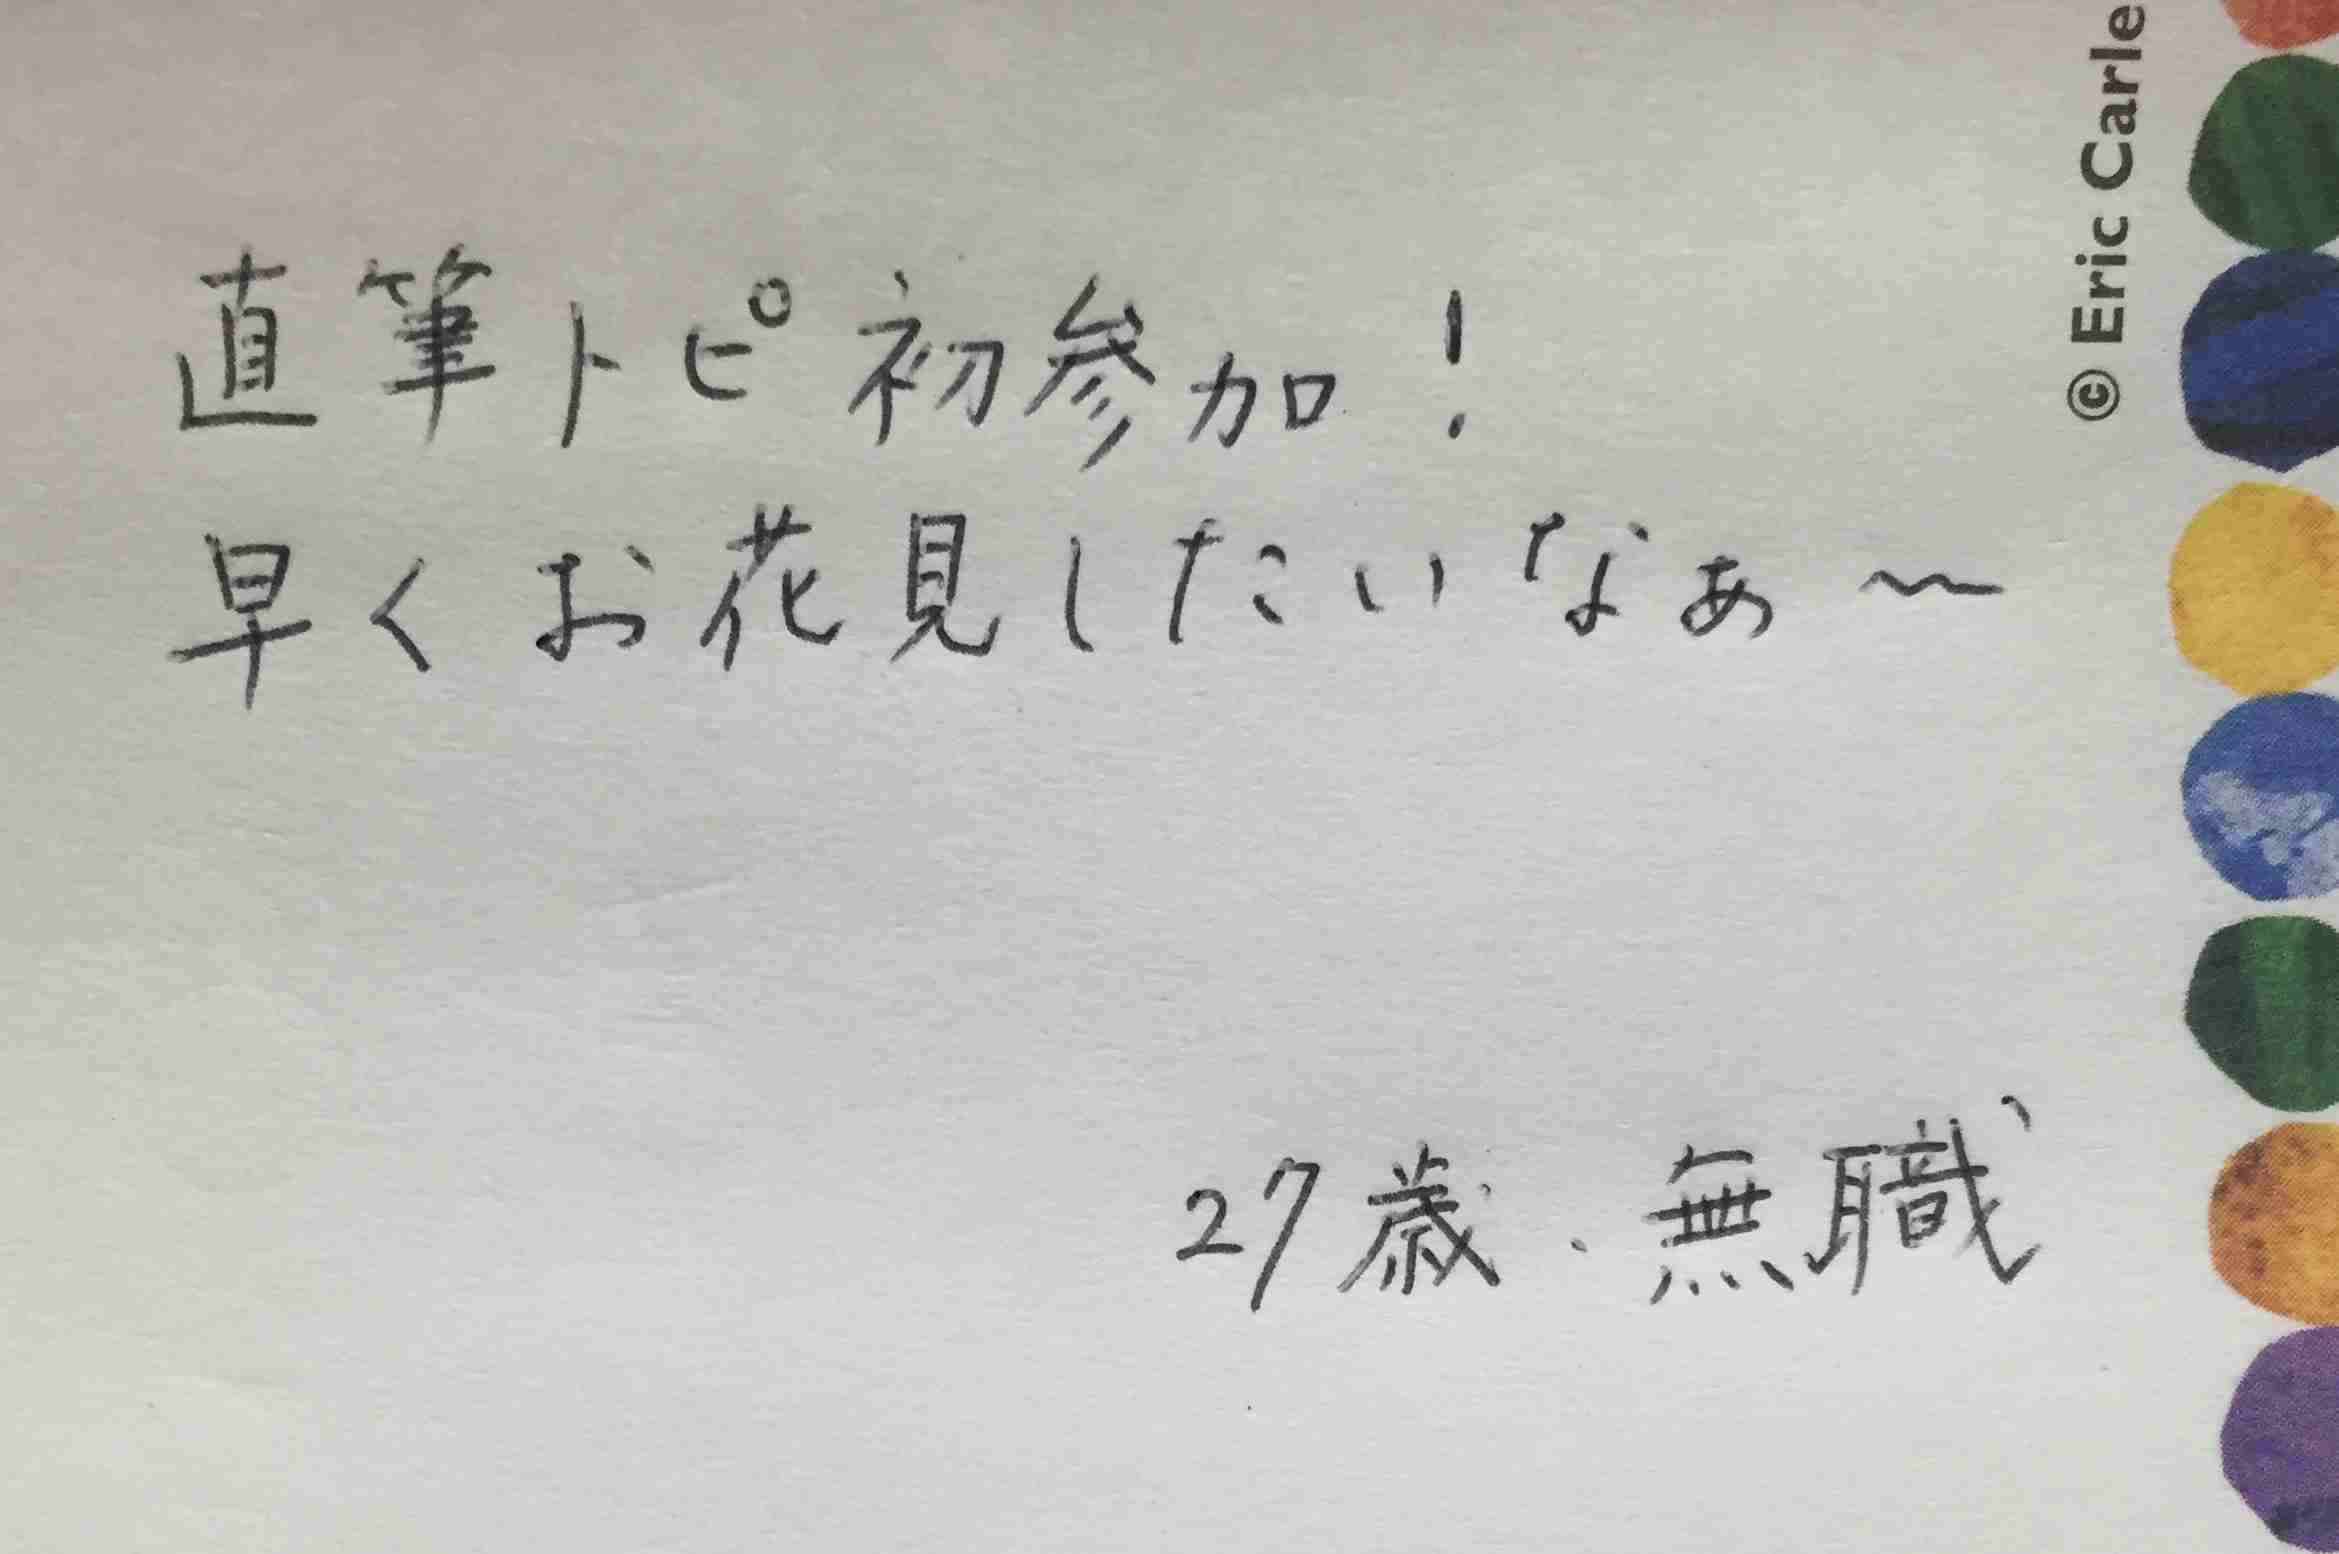 直筆トピ初参加!
早くお花見したいなぁ〜
27歳.無職
© Eric Carle